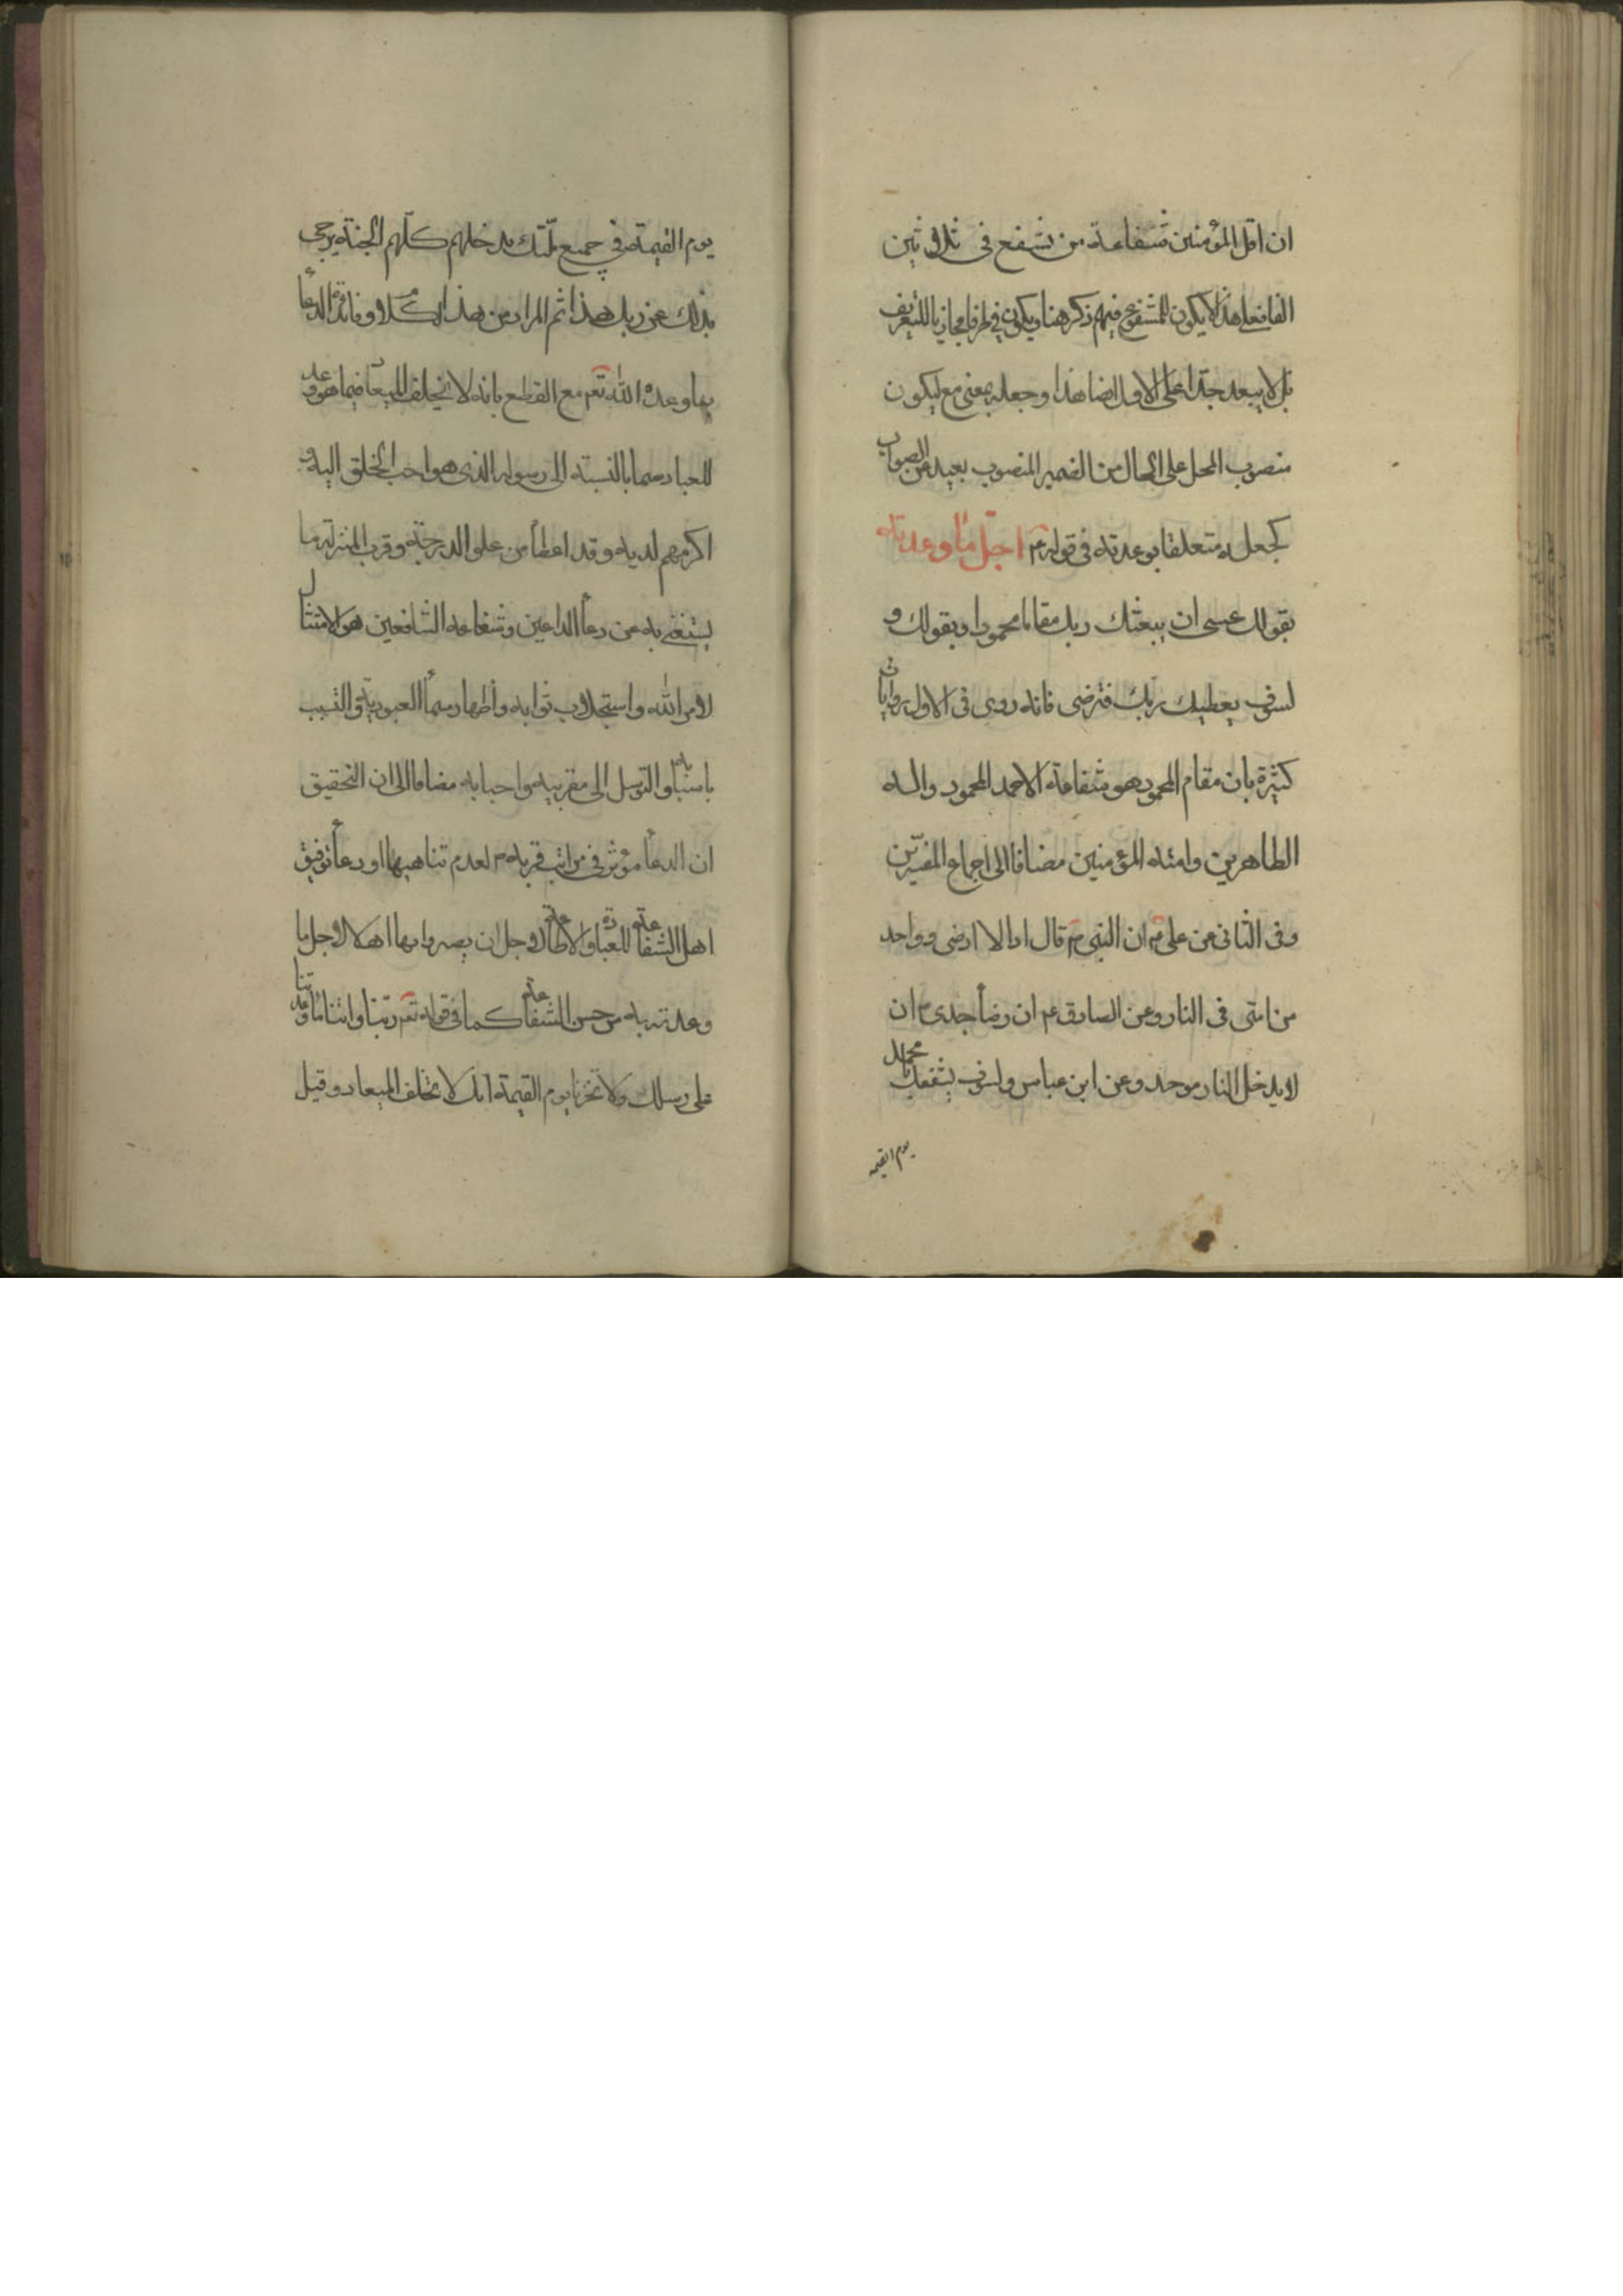 ان اقل المؤمنين شفاعة من تشفع فى ثلاثين
الفا فعلى هذا لا يكون للمشفوع فيهم ذكر هنا ويكون فى ظرفا مجازيا للتعريف
بل لا يبعد جدا على الاول ايضا هذا وجعله بمعنى مع ليكون
منصوب المحل على الحال من الضمير المنصوب بعيد عن الصواب
كجعله متعلقا بوعدته فى قوله ع اجل ما وعدته
بقولك عسى ان يبعثك ربك مقاما محمودا وبقولك و
لسوف يعطيك ربك فترضى فانه روى فى الاول بروايات
كثيرة بان مقام المحمود هو شفاعة الاحمد المحمود واله
الطاهرين وامته المؤمنين مضافا الى اجماع المفسرين
وفى الثانى عن على ع ان النبى ص قال اذا لا ارضى وواحد
من امتى فى النار وعن الصادق ع ان رضا جدى ص ان
لا يدخل النار موحد وعن ابن عباس ولسوف يشفعك يا محمد
يوم القيمه
يوم القيمة فى جميع امتك يدخلهم كلهم الجنة يرجى
بذلك عن ربك هذا ثم المراد من هذا الكلام وفائدة الدعأ
بما وعده الله تعم مع القطع بانه لا يخلف الميعاد فيما هو وعد
للعباد سيما بالنسبة الى رسوله الذى هو احب الخلق اليه و
اكرمهم لديه وقد اعطأ من علو الدرجة وقرب المنزلة ما
يستغنى به عن دعأ الداعين وشفاعة الشافعين هو الامتثال
لامر الله واستجلاب ثوابه واظهار سمأ العبودية والتسبب
باسبابه والتوسل الى مقربيه واحبابه مضافا الى ان التحقيق
ان الدعأ مؤثر فى مراتب قربه ص لعدم تناهيها او دعأ توفيق
اهل الشفاعة للعبادة والاطاعة لاجل ان يصيروا بها اهلا لاجل ما
وعدته به من حسن الشفاعة كما فى قوله تعم ربنا واتنا ما وعدتنا
على رسلك ولا تخزنا يوم القيمة انك لا تخلف الميعاد وقيل